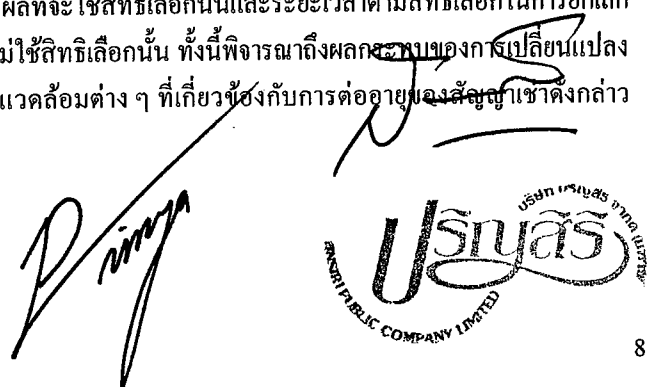 ผลที่จะใช้สิทธิเลือกนั้นและระยะเวลาตามสิทธิเลือกในการยกเลิก
ม่ใช้สิทธิเลือกนั้น ทั้งนี้พิจารณาถึงผลกระทบของการเปลี่ยนแปลง
แวดล้อมต่าง ๆ ที่เกี่ยวข้องกับการต่ออายุของสัญญาเช่าดังกล่าว
บริษัท ปริญสิริ จำกัด
ปริญสิริ
PUBLIC COMPANY LIMITED
8